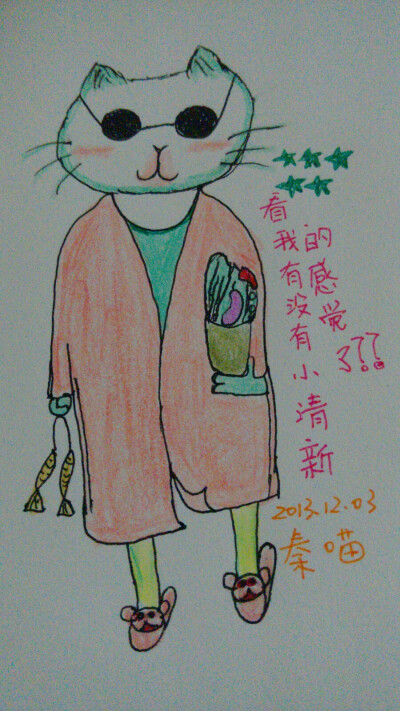 看我有没有小清新
的感觉了??
2013.12.03
秦喵